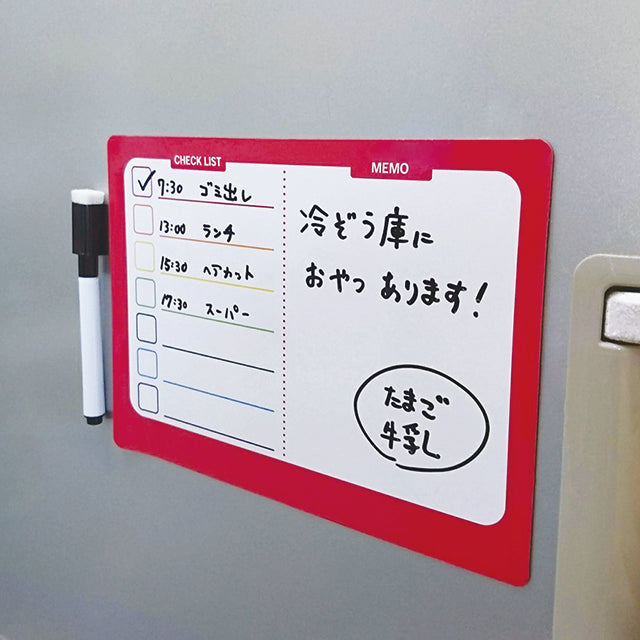 CHECK LIST
7:30 ゴミ出し
13:00 ランチ
15:30 ヘアカット
17:30 スーパー
MEMO
冷ぞう庫に
おやつ あります!
たまご
牛乳